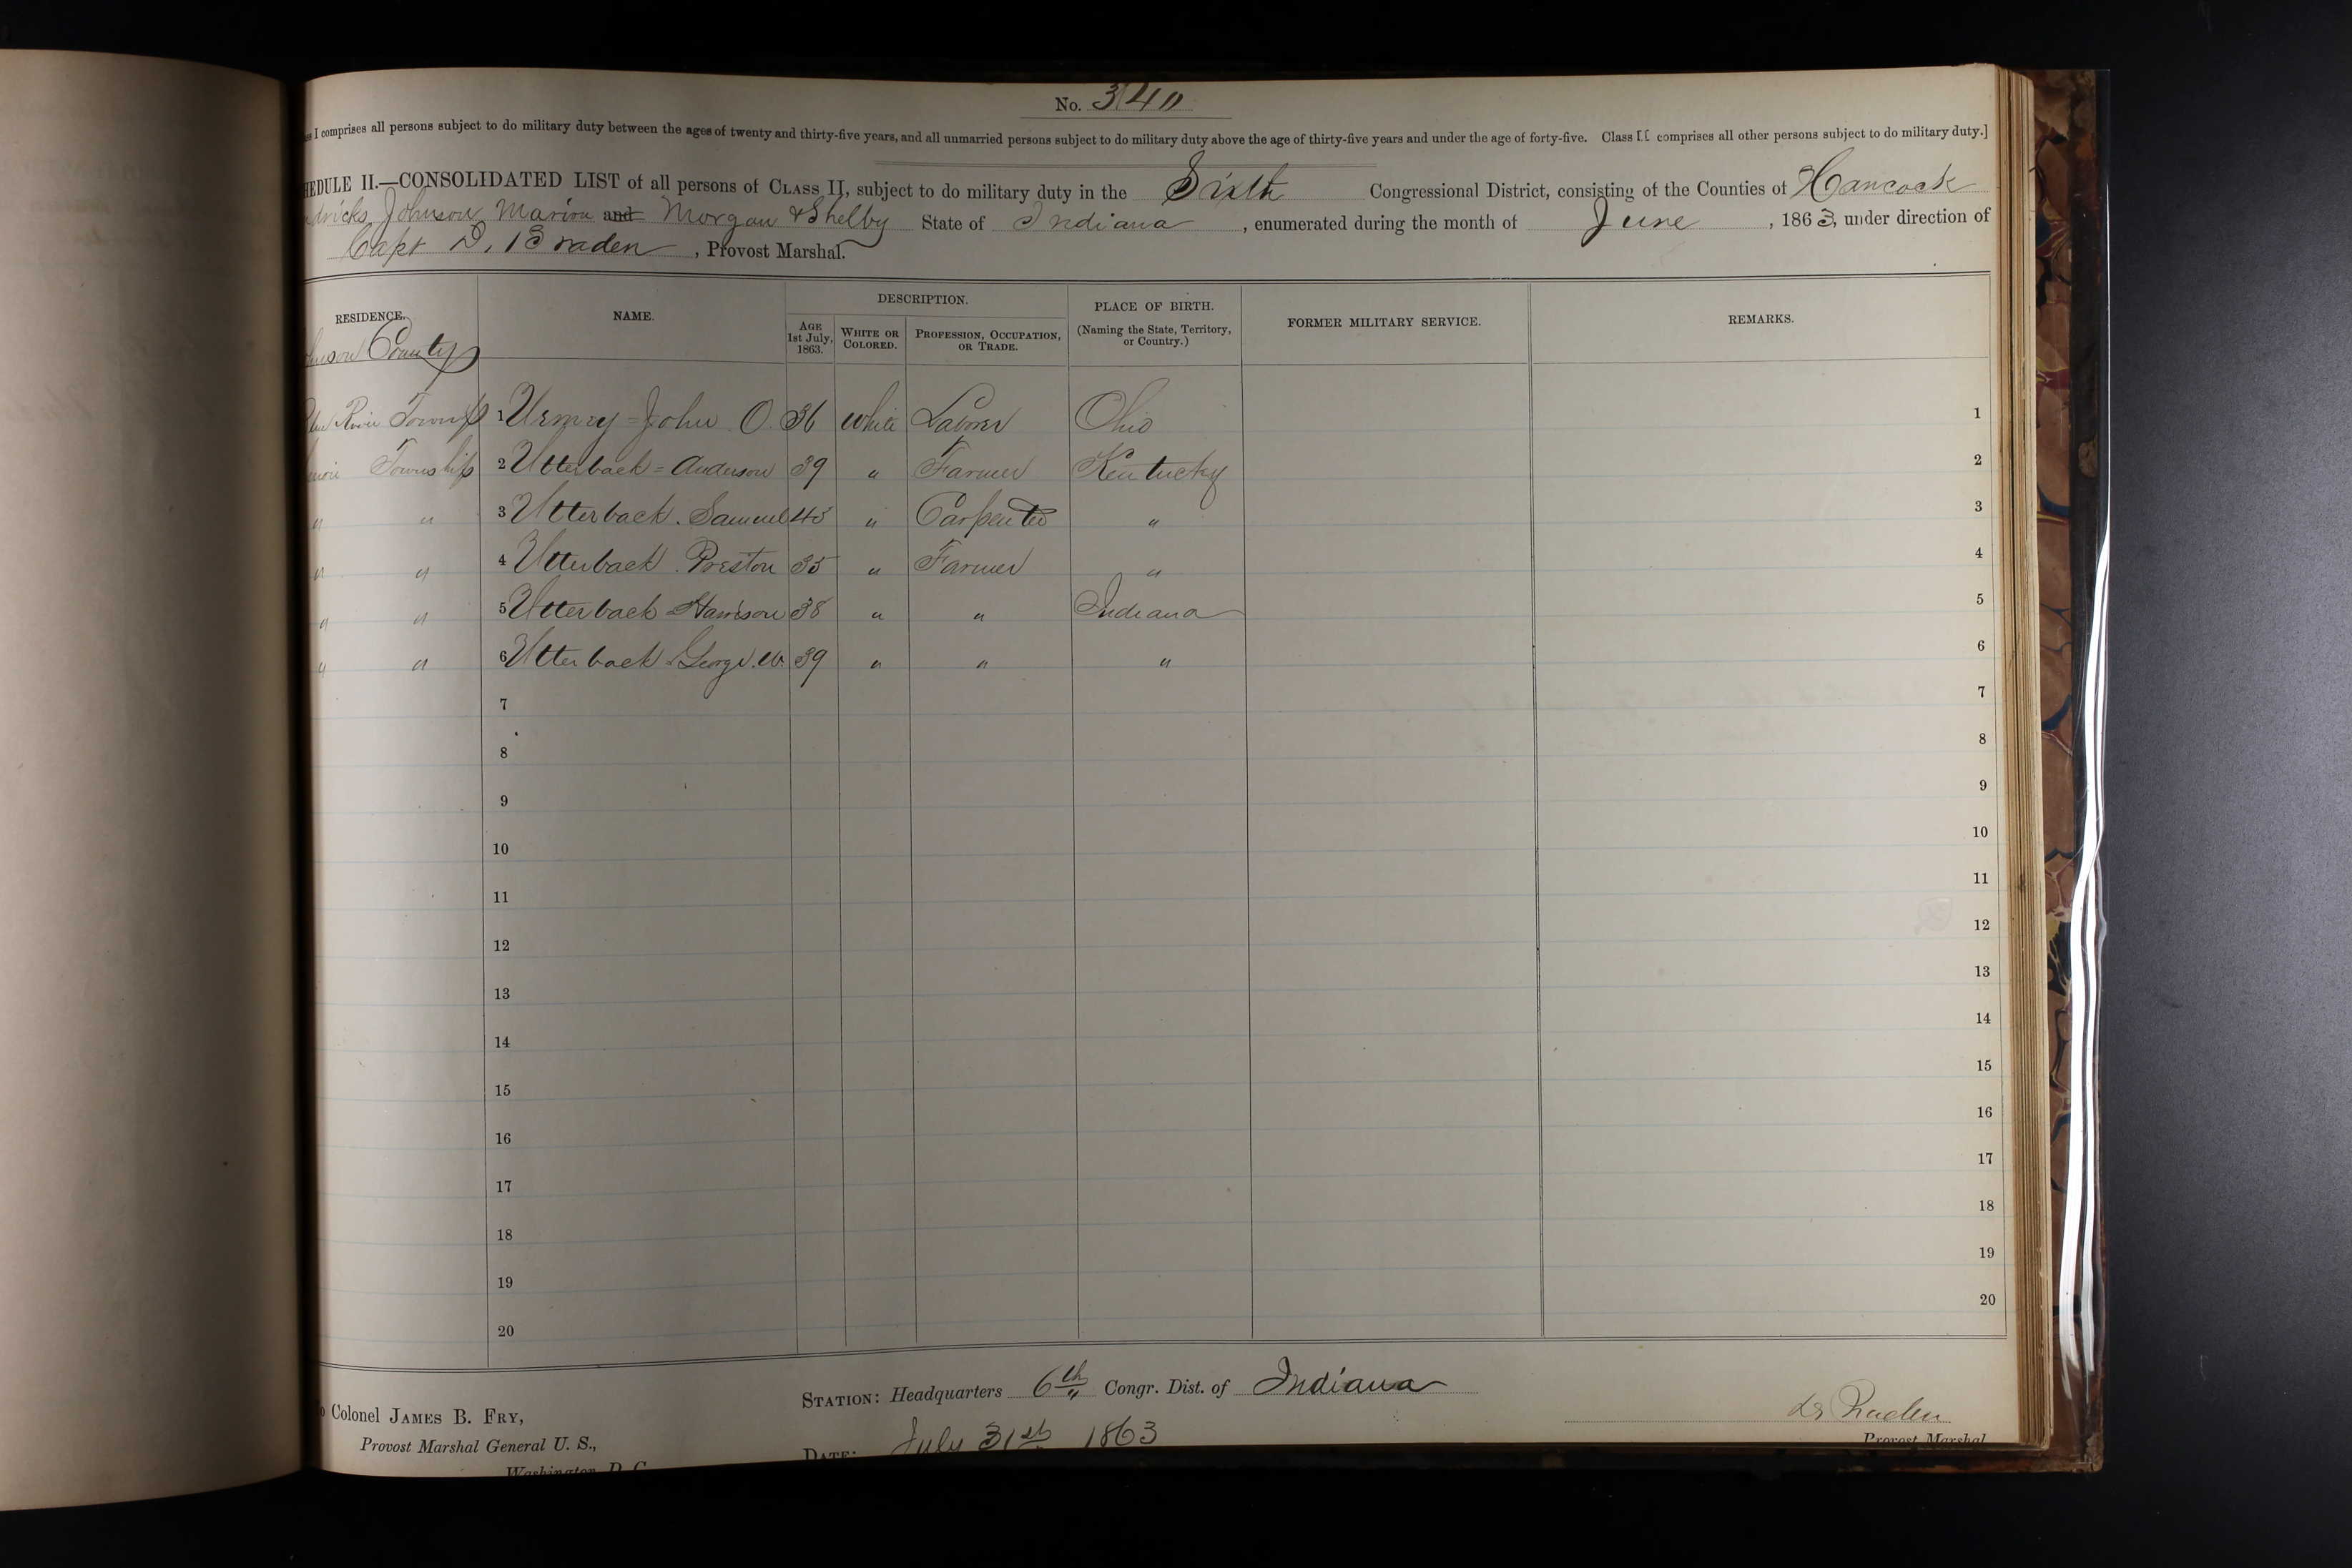 No. 340
I comprises all persons subject to do military duty between the ages of twenty and thirty-five years, and all unmarried persons subject to do military duty above the age of thirty-five years and under the age of forty-five. Class II comprises all other persons subject to do military duty.]
HEDULE II.—CONSOLIDATED LIST of all persons of CLASS II, subject to do military duty in the Sixth Congressional District, consisting of the Counties of Hancock
dricks, Johnson, Marion and Morgan & Shelby State of Indiana, enumerated during the month of June, 1863, under direction of
Capt D. Braden, Provost Marshal.
RESIDENCE. NAME. DESCRIPTION. PLACE OF BIRTH. FORMER MILITARY SERVICE. REMARKS.
AGE 1st July, 1863. WHITE OR COLORED. PROFESSION, OCCUPATION, OR TRADE. (Naming the State, Territory, or Country.)
hnson County
River Townsp 1 Urmey = John O. 36 White Laborer Ohio 1
Township 2 Utterback = Anderson 39 " Farmer Kentucky 2
" " 3 Utterback. Samuel 45 " Carpenter " 3
" " 4 Utterback. Preston 35 " Farmer " 4
" " 5 Utterback = Harrison 38 " " Indiana 5
" " 6 Utterback. George. W. 39 " " " 6
7 7
8 8
9 9
10 10
11 11
12 12
13 13
14 14
15 15
16 16
17 17
18 18
19 19
20 20
STATION: Headquarters 6th Congr. Dist. of Indiana
o Colonel JAMES B. FRY,
Provost Marshal General U. S.,
Washington, D. C.
DATE: July 31st 1863
Braden
Provost Marshal